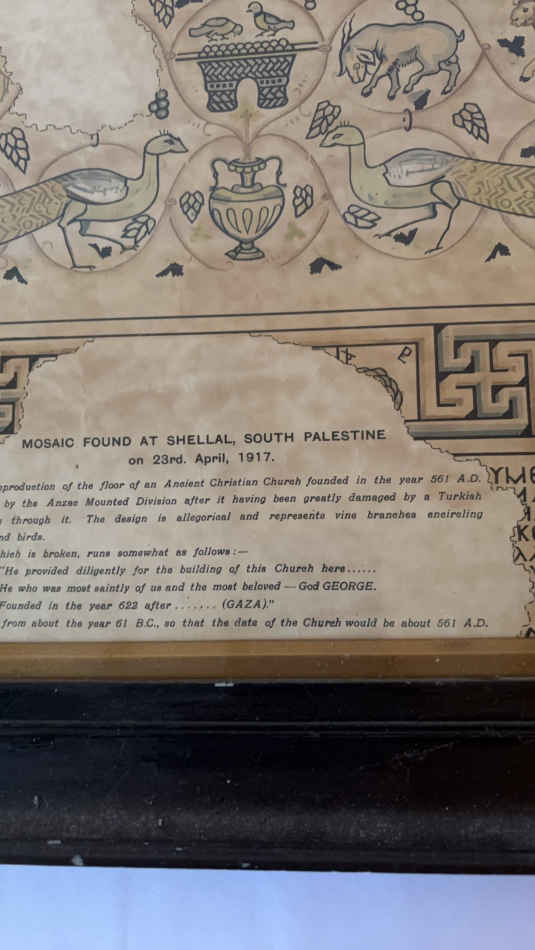 MOSAIC FOUND AT SHELLAL, SOUTH PALESTINE
on 23rd. April, 1917.
of the floor of an Ancient Christian Church founded in the year 561 A.D.
by the Anzac Mounted Division after it having been greatly damaged by a Turkish
through it. The design is allegorical and represents vine branches encircling
birds.
is broken, runs somewhat as follows:—
"He provided diligently for the building of this Church here......
He who was most saintly of us and the most beloved — God GEORGE.
Founded in the year 622 after ....... (GAZA)."
from about the year 61 B.C., so that the date of the Church would be about 561 A.D.